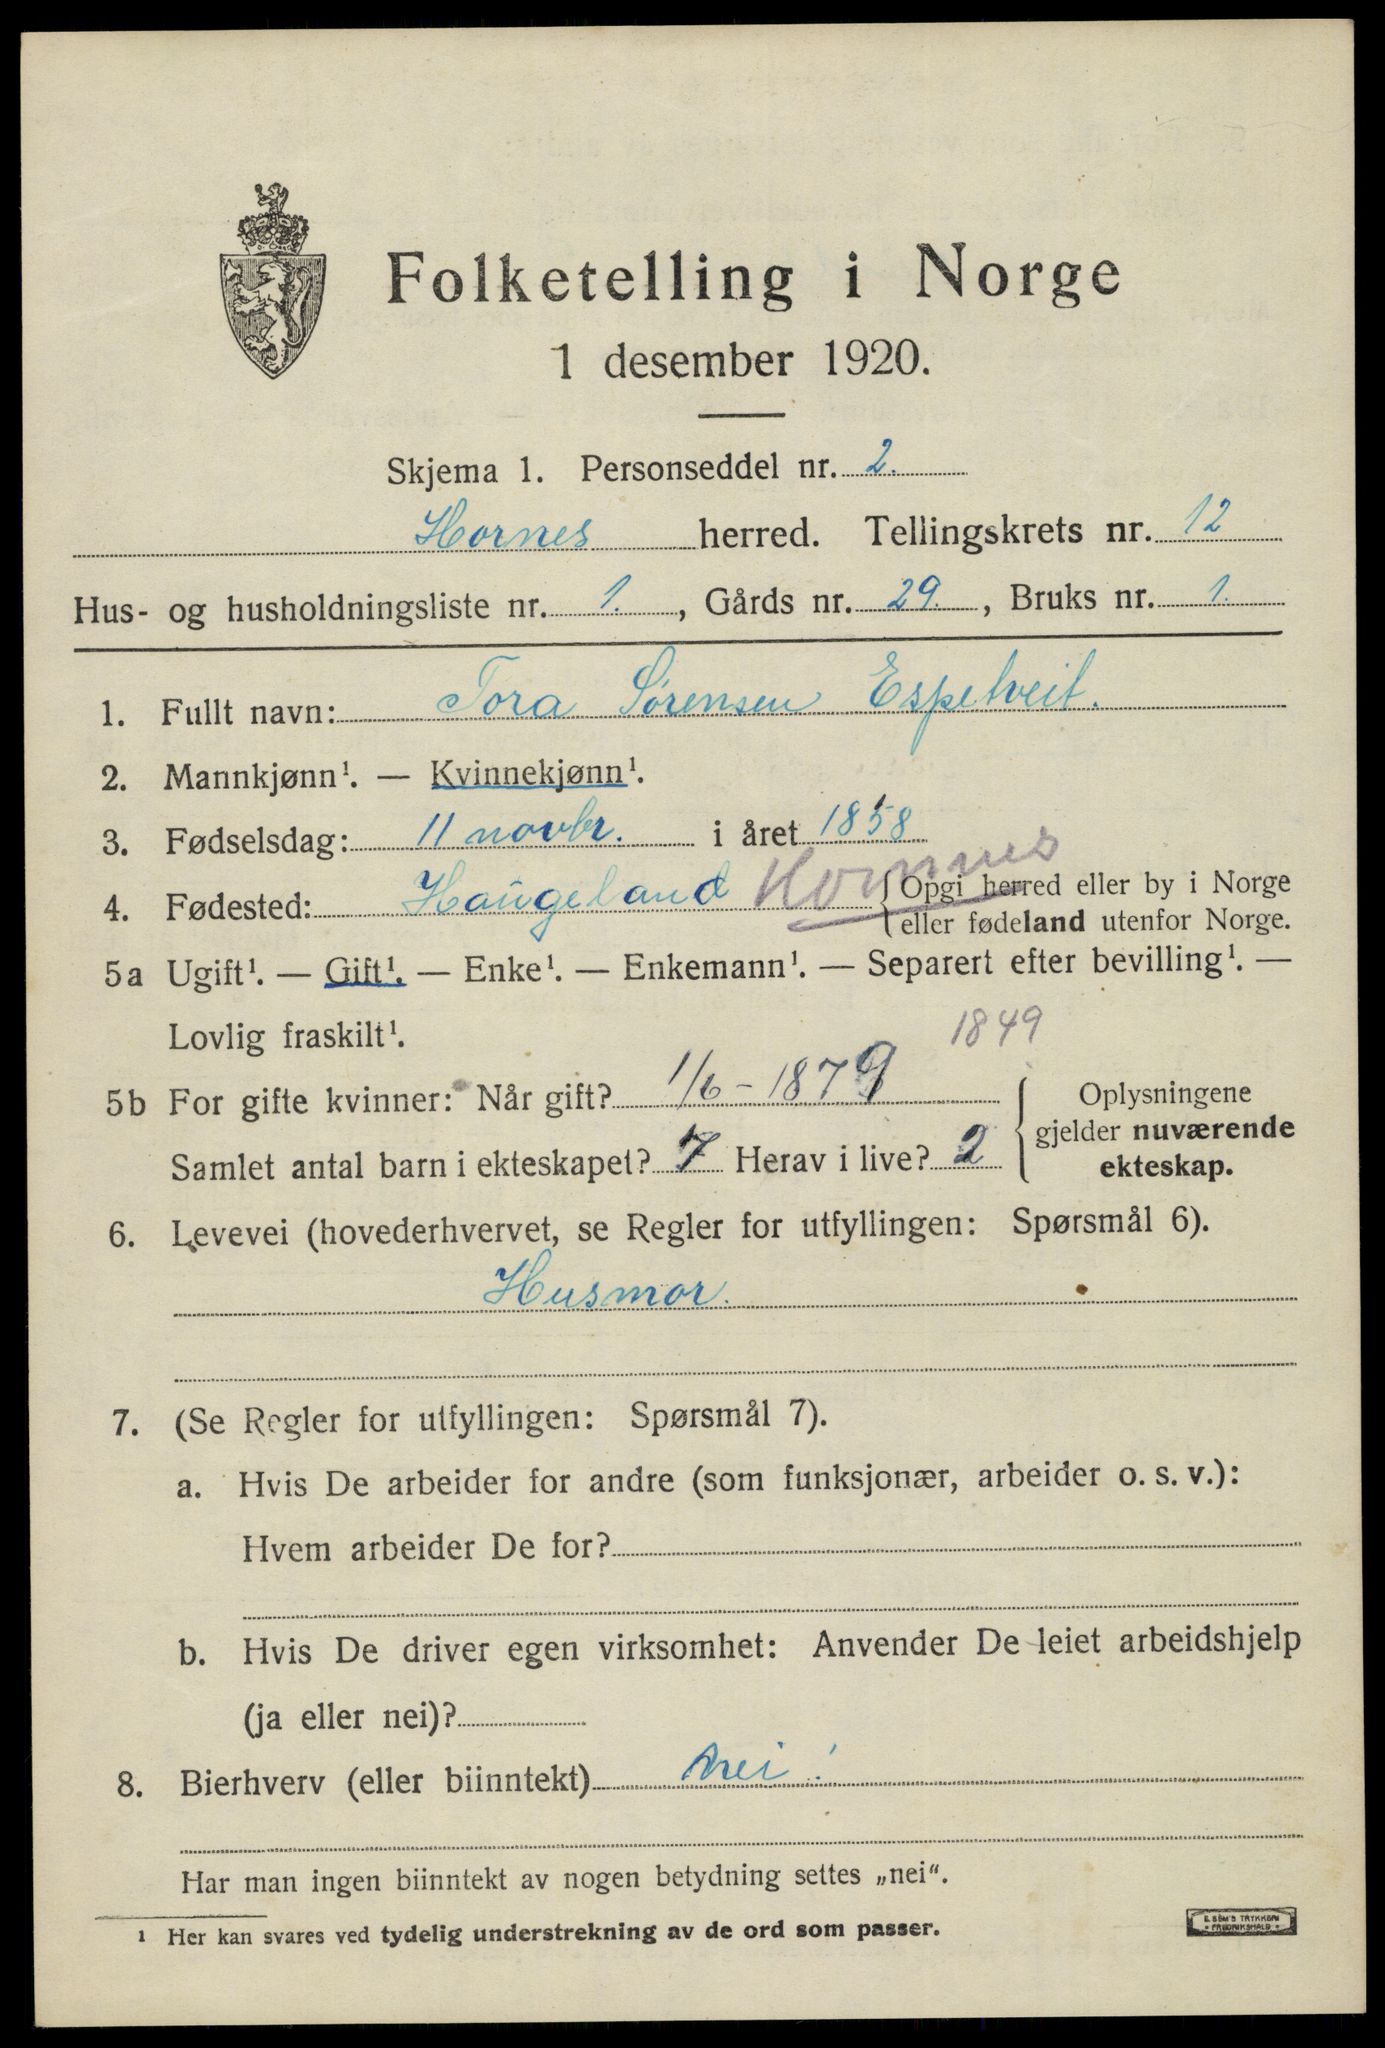 Folketelling i Norge
1 desember 1920.
Skjema 1. Personseddel nr. 2.
Hornes herred. Tellingskrets nr. 12
Hus- og husholdningsliste nr. 1., Gårds nr. 29., Bruks nr. 1.
1. Fullt navn: Tora Sørensen Espetveit.
2. Mannkjønn¹. — Kvinnekjønn¹.
3. Fødselsdag: 11 novbr. i året 1858
4. Fødested: Haugeland Hornnes { Opgi herred eller by i Norge
eller fødeland utenfor Norge.
5a Ugift¹. — Gift¹. — Enke¹. — Enkemann¹. — Separert efter bevilling¹. —
Lovlig fraskilt¹.
1849
5b For gifte kvinner: Når gift? 1/6 - 1879
Samlet antal barn i ekteskapet? 7 Herav i live? 2
{ Oplysningene
gjelder nuværende
ekteskap.
6. Levevei (hovederhvervet, se Regler for utfyllingen: Spørsmål 6).
Husmor.
7. (Se Regler for utfyllingen: Spørsmål 7).
a. Hvis De arbeider for andre (som funksjonær, arbeider o. s. v.):
Hvem arbeider De for?
b. Hvis De driver egen virksomhet: Anvender De leiet arbeidshjelp
(ja eller nei)?
8. Bierhverv (eller biinntekt) nei!
Har man ingen biinntekt av nogen betydning settes „nei“.
¹ Her kan svares ved tydelig understrekning av de ord som passer.
E. SEM'S TRYKKERI
• FREDRIKSHALD •